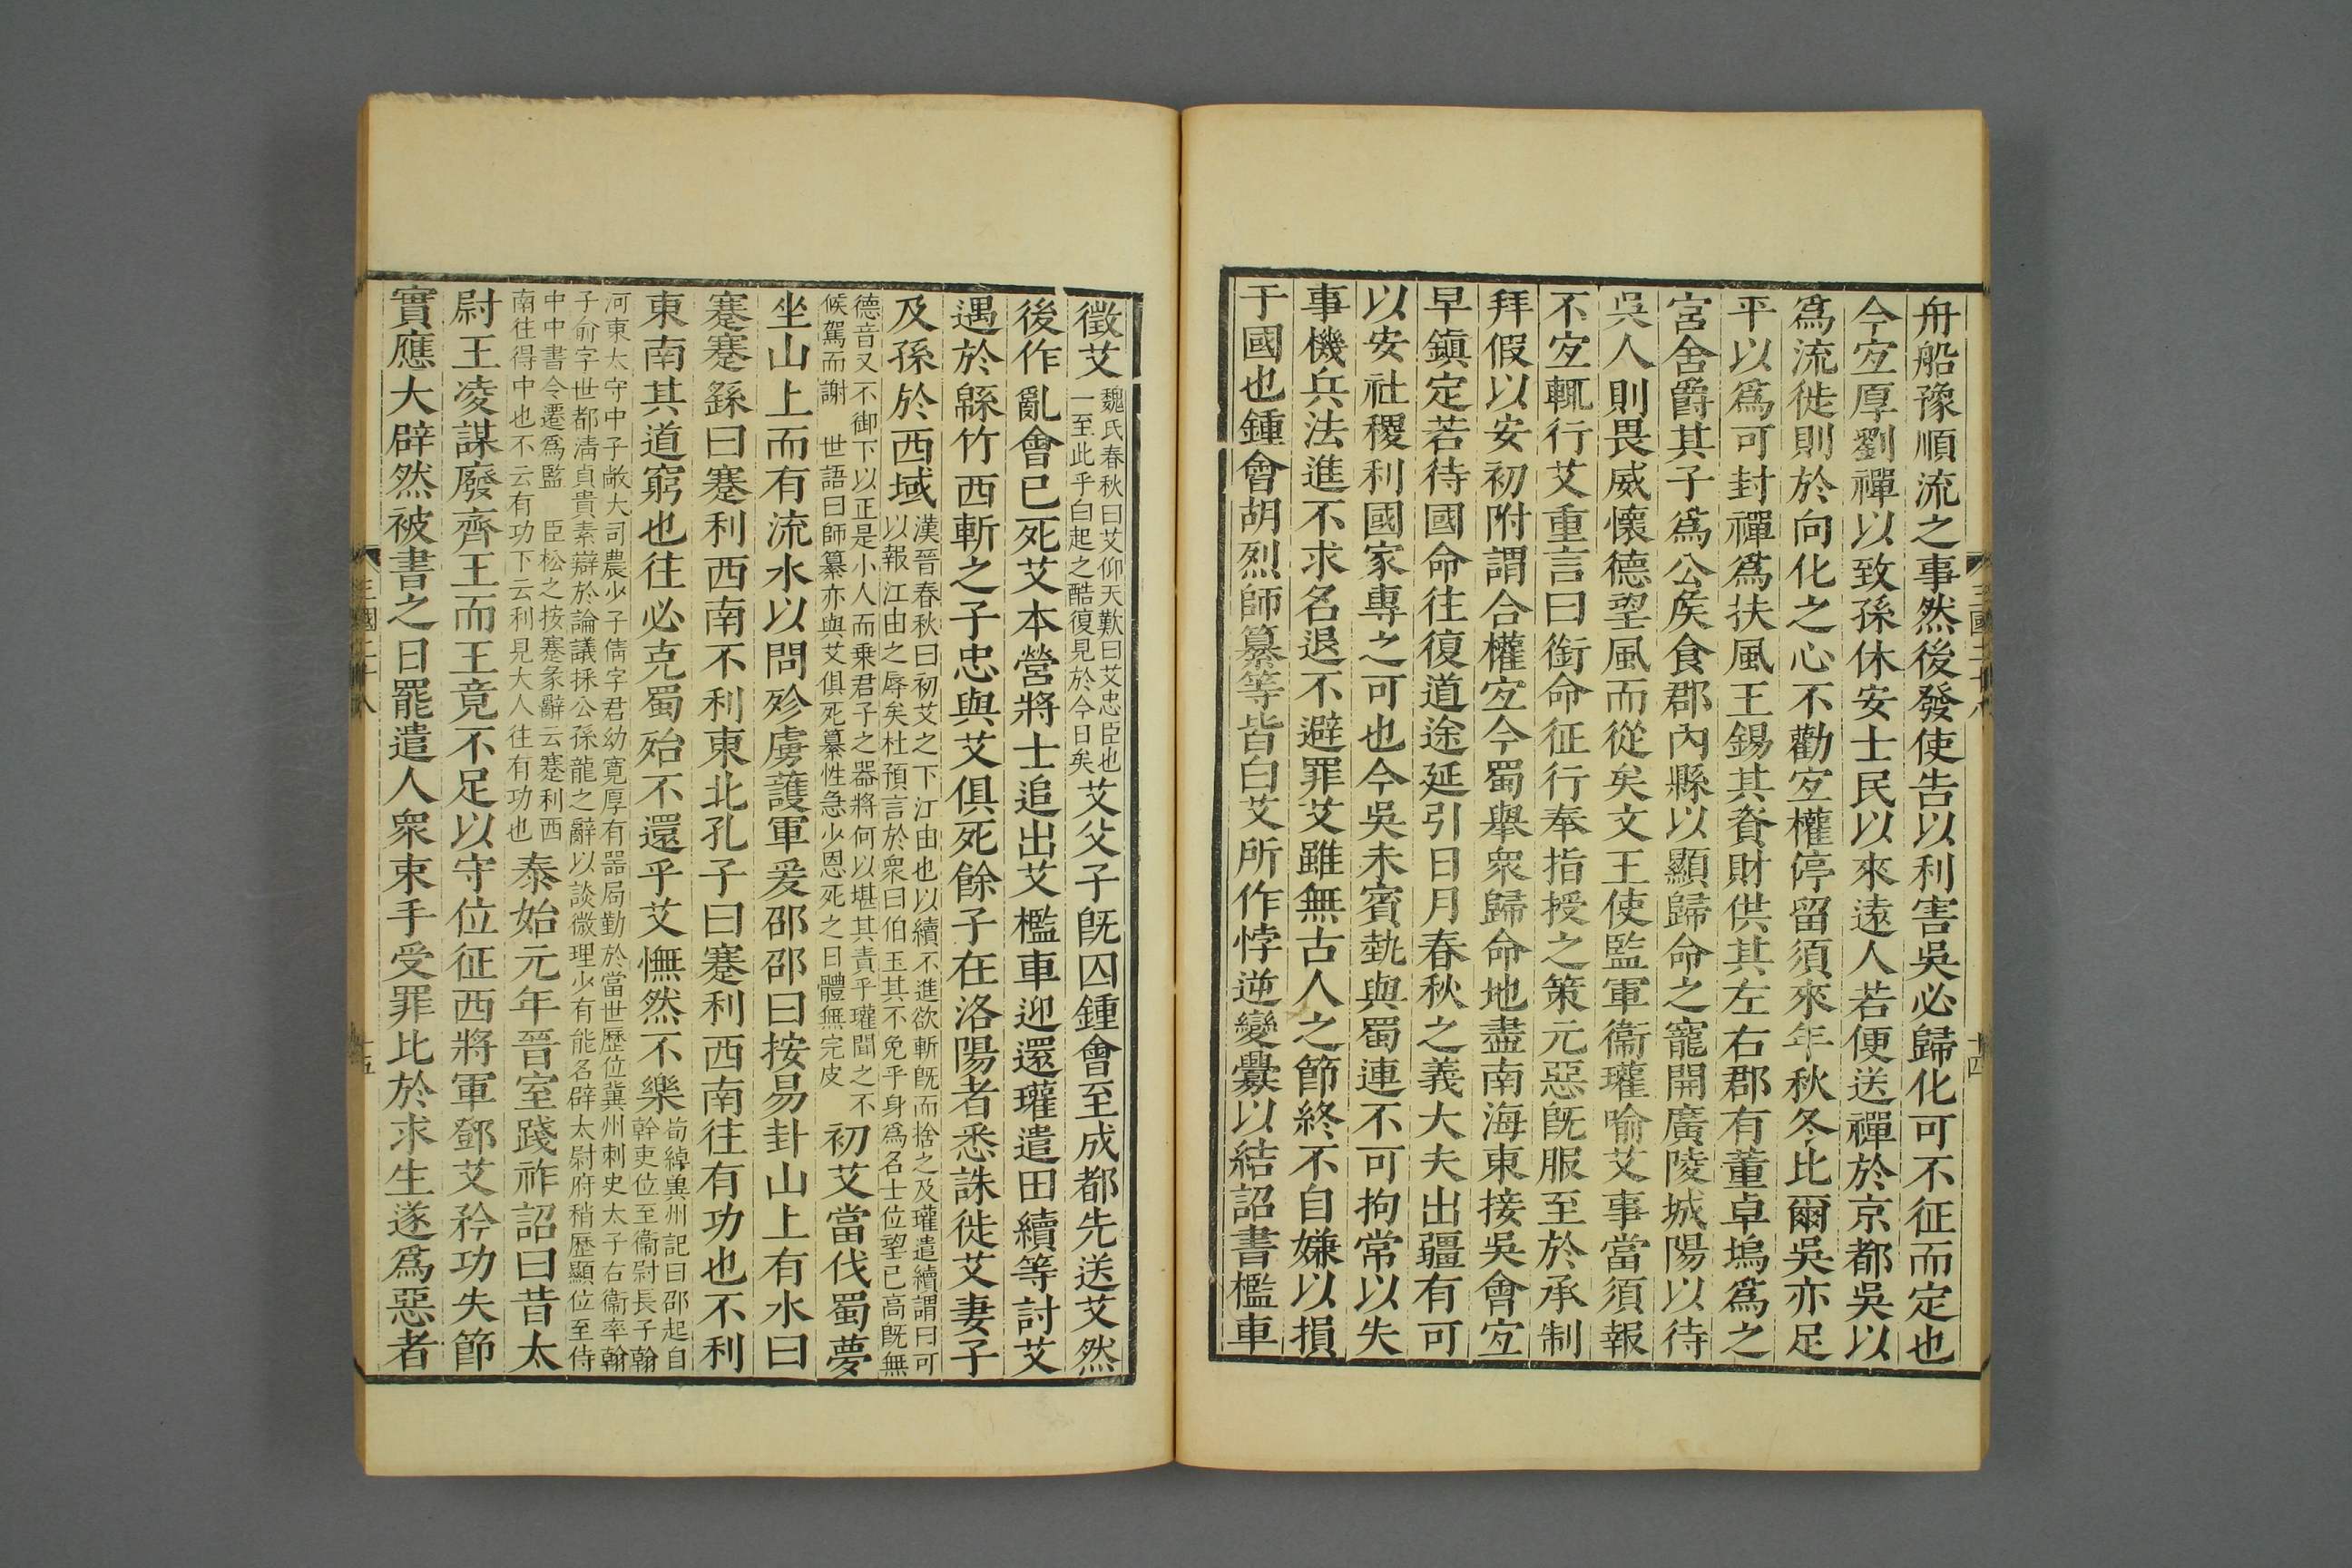 舟船豫順流之事然後發使告以利害吳必歸化可不征而定也
今宐厚劉禪以致孫休安士民以來遠人若便送禪於京都吳以
爲流徙則於向化之心不勸宐權停留須來年秋冬比爾吳亦足
平以爲可封禪爲扶風王錫其資財供其左右郡有董卓塢爲之
宮舍爵其子爲公矦食郡內縣以顯歸命之寵開廣陵城陽以待
吳人則畏威懷德望風而從矣文王使監軍衞瓘喻艾事當須報
不宐輒行艾重言曰銜命征行奉指授之策元惡旣服至於承制
拜假以安初附謂合權宐今蜀舉衆歸命地盡南海東接吳會宐
早鎭定若待國命往復道途延引日月春秋之義大夫出疆有可
以安社稷利國家專之可也今吳未賓埶與蜀連不可拘常以失
事機兵法進不求名退不避罪艾雖無古人之節終不自嫌以損
于國也鍾會胡烈師纂等皆白艾所作悖逆變釁以結詔書檻車
三國二十八
十四
徵艾
魏氏春秋曰艾仰天歎曰艾忠臣也
一至此乎白起之酷復見於今日矣
艾父子旣囚鍾會至成都先送艾然
後作亂會已死艾本營將士追出艾檻車迎還瓘遣田續等討艾
遇於緜竹西斬之子忠與艾俱死餘子在洛陽者悉誅徙艾妻子
及孫於西域
漢晉春秋曰初艾之下江由也以續不進欲斬旣而捨之及瓘遣續謂曰可
以報江由之辱矣杜預言於衆曰伯玉其不免乎身爲名士位望已高旣無
德音又不御下以正是小人而乗君子之器將何以堪其責乎瓘聞之不
候駕而謝 世語曰師纂亦與艾俱死纂性急少恩死之日體無完皮
初艾當伐蜀夢
坐山上而有流水以問殄虜護軍爰邵邵曰按易卦山上有水曰
蹇蹇繇曰蹇利西南不利東北孔子曰蹇利西南往有功也不利
東南其道窮也往必克蜀殆不還乎艾憮然不樂
荀綽兾州記曰邵起自
幹吏位至衞尉長子翰
河東太守中子敞大司農少子倩字君幼寬厚有器局勤於當世歷位兾州刺史太子右衞率翰
子俞字世都清貞貴素辯於論議採公孫龍之辭以談微理少有能名辟太尉府稍歷顯位至侍
中中書令遷爲監 臣松之按蹇彖辭云蹇利西
南往得中也不云有功下云利見大人往有功也
泰始元年晉室踐祚詔曰昔太
尉王凌謀廢齊王而王竟不足以守位征西將軍鄧艾矜功失節
實應大辟然被書之日罷遣人衆束手受罪比於求生遂爲惡者
三國二十八
十五